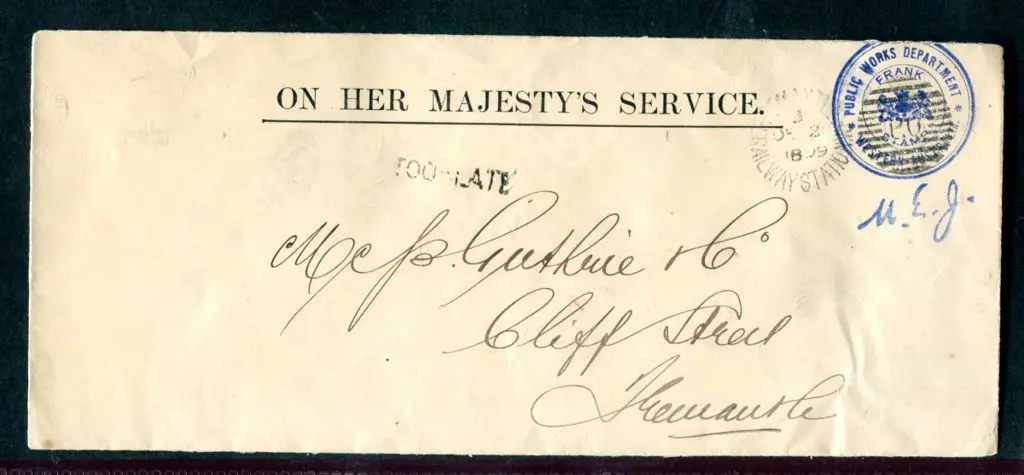 ON HER MAJESTY'S SERVICE.
PUBLIC WORKS DEPARTMENT
FRANK
STAMP
WESTERN AUSTRALIA
RAILWAY STATION
TOO LATE
M.E.J.
Guthrie & Co
Cliff Street
Fremantle